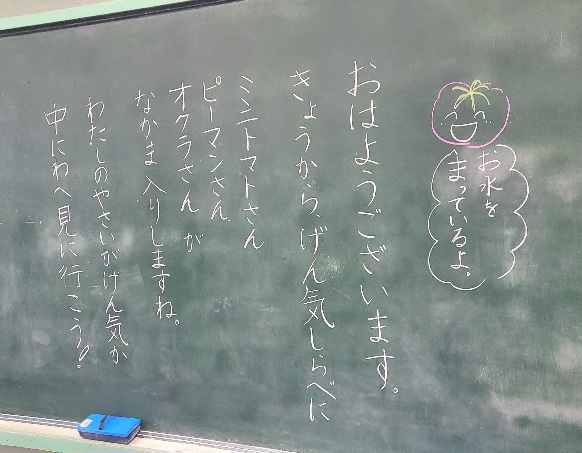 お水を
まっているよ。
おはようございます。
きょうから、げん気しらべに
ミニトマトさん
ピーマンさん
オクラさん が
なかま入りしますね。
わたしのやさいがげん気か
中にわへ見に行こう！